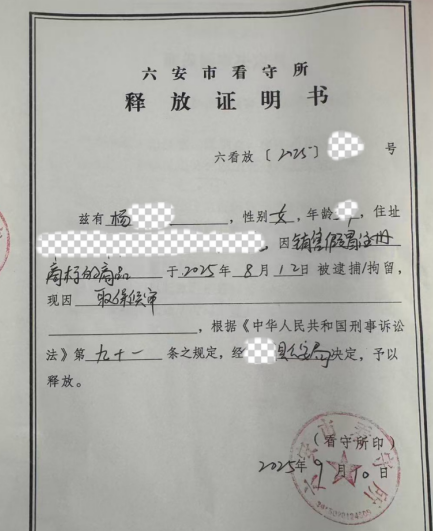 六安市看守所
释放证明书
六看放〔2025〕 号
兹有杨 ，性别女，年龄 ，住址
，因销售假冒注册
商标的商品 于2025年8月12日被逮捕/拘留，
现因 取保候审
，根据《中华人民共和国刑事诉讼
法》第九十一条之规定，经 县公安局决定，予以
释放。
（看守所印）
2025年9月10日
六安市看守所